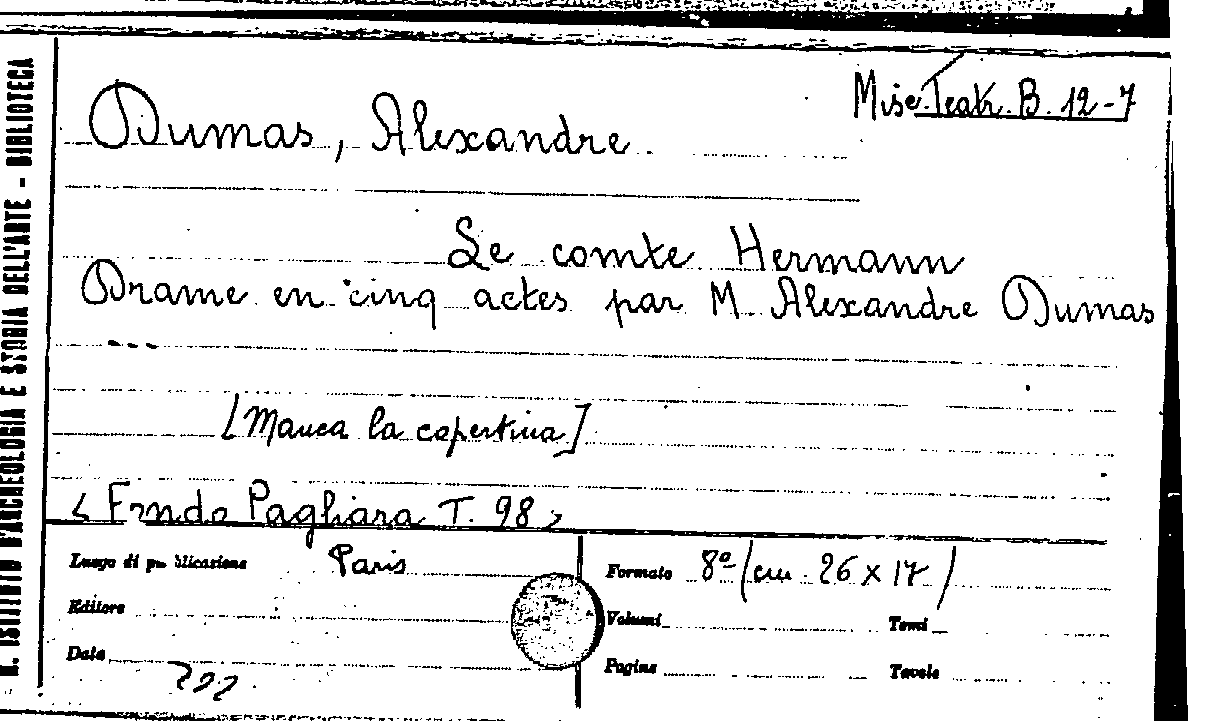 R. ISTITUTO D'ARCHEOLOGIA E STORIA DELL'ARTE - BIBLIOTECA
Misc. Teatr. B. 12-7
Dumas, Alexandre.
Le comte Hermann
Drame en cinq actes par M. Alexandre Dumas
...
[Manca la copertina]
< Fondo Pagliara T. 98 >
Luogo di pubblicazione Paris
Formato 8º (cm. 26 x 17)
Editore
Volumi Tomi
Data
Pagine Tavole